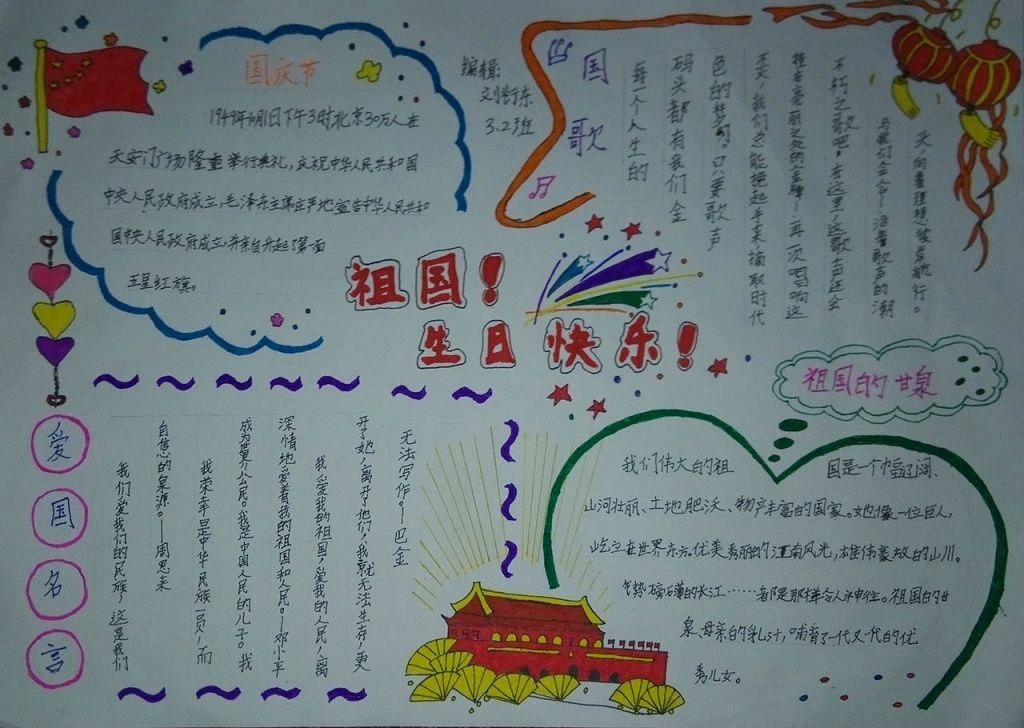 国庆节
1949年10月1日下午3时北京30万人在
天安门广场隆重举行典礼,庆祝中华人民共和国
中央人民政府成立,毛泽东主席庄严地宣告中华人民共和
国中央人民政府成立,并亲自升起了第一面
五星红旗。
编辑:
刘衍东
3.2班
国歌
每一个人生的
码头都有我们金
色的梦。只要歌声
不灭,我们总能挽起手来摘取时代
挂在亮丽之处的金牌!再一次唱响这
不朽之歌吧,在这里,这歌声还会
与我们会合——沿着歌声的潮
头,向着理想彼岸航行。
祖国!
生日快乐!
爱国名言
无法写作。——巴金
开了她,离开了他们,我就无法生存,更
我爱我的祖国,爱我的人民,离
深情地爱着我的祖国和人民。——邓小平
成为世界公民。我是中国人民的儿子。我
我荣幸是中华民族一员,而
自想的泉源。——周恩来
我们爱我们的民族,这是我们
祖国的甘泉
我们伟大的祖国是一个幅辽阔、
山河壮丽、土地肥沃、物产丰富的国家。她像一位巨人,
屹立在世界东方。优美秀丽的江南风光,雄伟豪放的山川。
气势磅礴的长江……都是那样令人神往。祖国的甘
泉,母亲的乳汁,哺育了一代又一代的优
秀儿女。